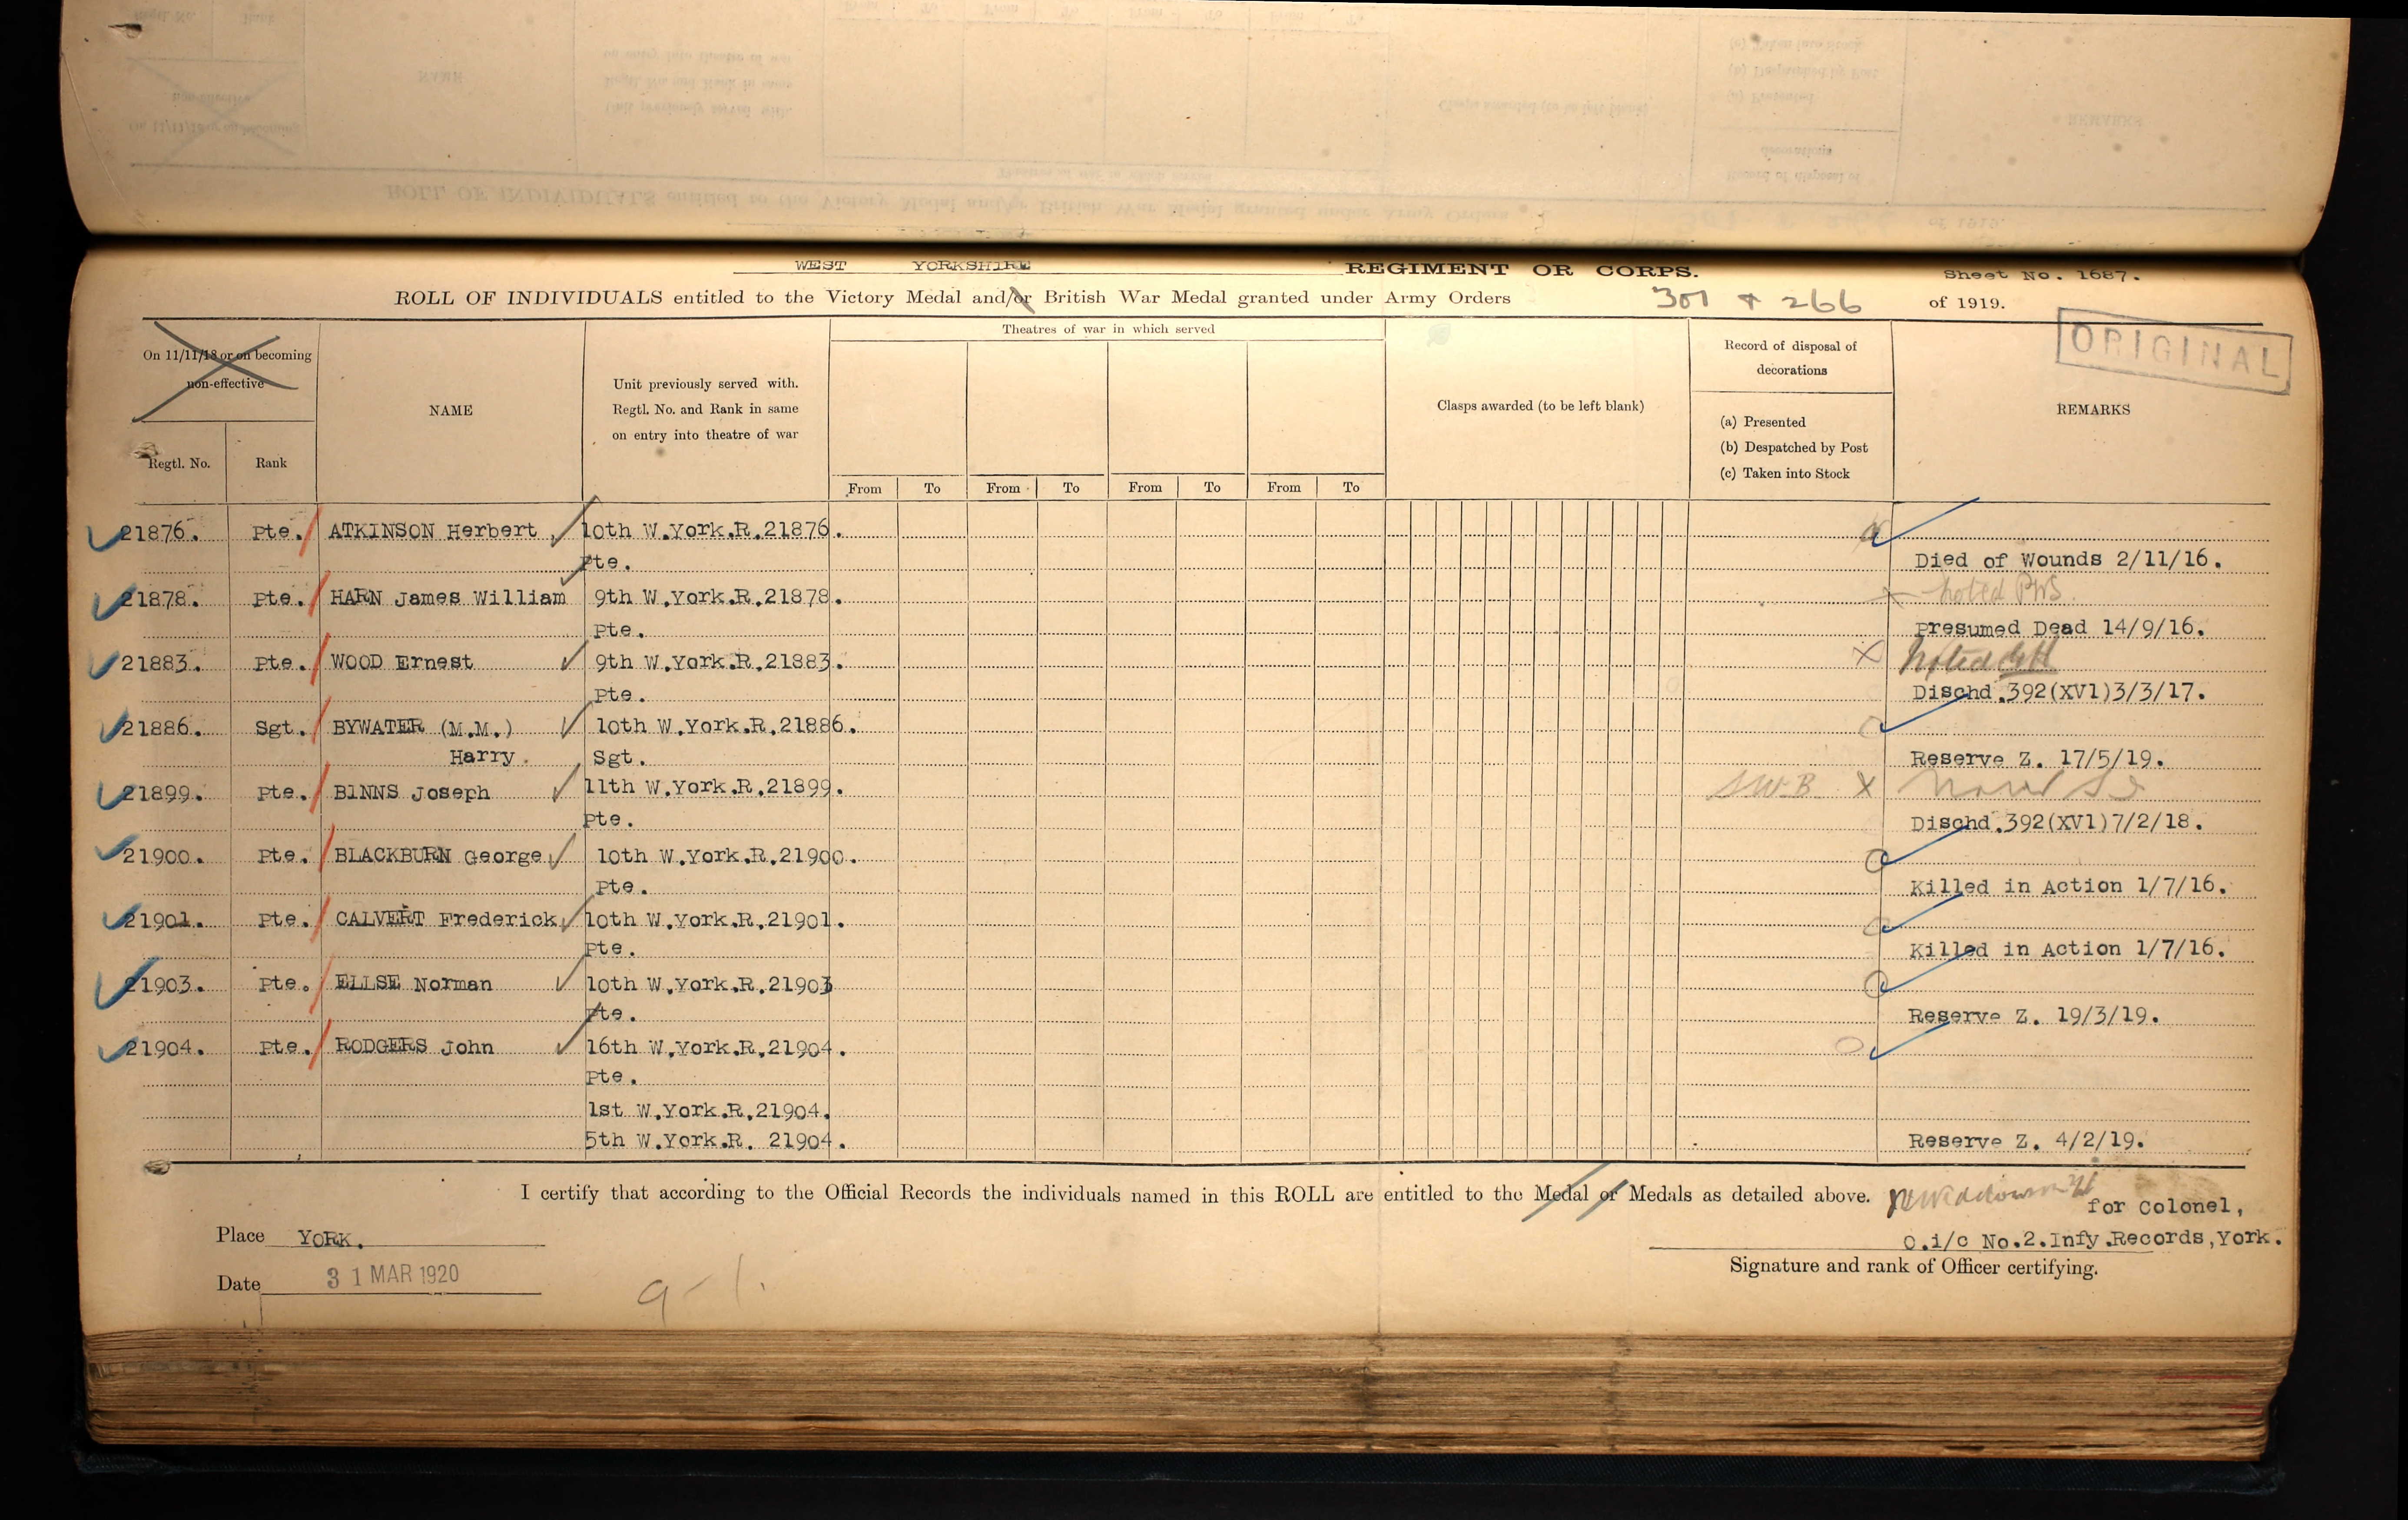 WEST YORKSHIRE REGIMENT OR CORPS. Sheet No. 1687.
ROLL OF INDIVIDUALS entitled to the Victory Medal and/or British War Medal granted under Army Orders 301 + 266 of 1919.
ORIGINAL
On 11/11/18 or on becoming
non-effective
Regtl. No.
Rank
NAME
Unit previously served with.
Regtl. No. and Rank in same
on entry into theatre of war
Theatres of war in which served
From To From To From To From To
Clasps awarded (to be left blank)
Record of disposal of
decorations
(a) Presented
(b) Despatched by Post
(c) Taken into Stock
REMARKS
21876. Pte. ATKINSON Herbert 10th W.York.R.21876.
Pte. Died of Wounds 2/11/16.
21878. Pte. HARN James William 9th W.York.R.21878. noted PWS.
Pte. Presumed Dead 14/9/16.
21883. Pte. WOOD Ernest 9th W.York.R.21883. X Noted
Pte. Dischd.392(XVI)3/3/17.
21886. Sgt. BYWATER (M.M.) 10th W.York.R.21886.
Harry. Sgt. Reserve Z. 17/5/19.
21899. Pte. BINNS Joseph 11th W.York.R.21899. SWB X
Pte. Dischd.392(XVI)7/2/18.
21900. Pte. BLACKBURN George 10th W.York.R.21900.
Pte. Killed in Action 1/7/16.
21901. Pte. CALVERT Frederick 10th W.York.R.21901.
Pte. Killed in Action 1/7/16.
21903. Pte. ELLSE Norman 10th W.York.R.21903
Pte. Reserve Z. 19/3/19.
21904. Pte. RODGERS John 16th W.York.R.21904.
Pte.
1st W.York.R.21904.
5th W.York.R. 21904. Reserve Z. 4/2/19.
I certify that according to the Official Records the individuals named in this ROLL are entitled to the Medal or Medals as detailed above.
for Colonel,
O.i/c No.2.Infy.Records,York.
Signature and rank of Officer certifying.
Place YORK.
Date 31 MAR 1920
9-1.